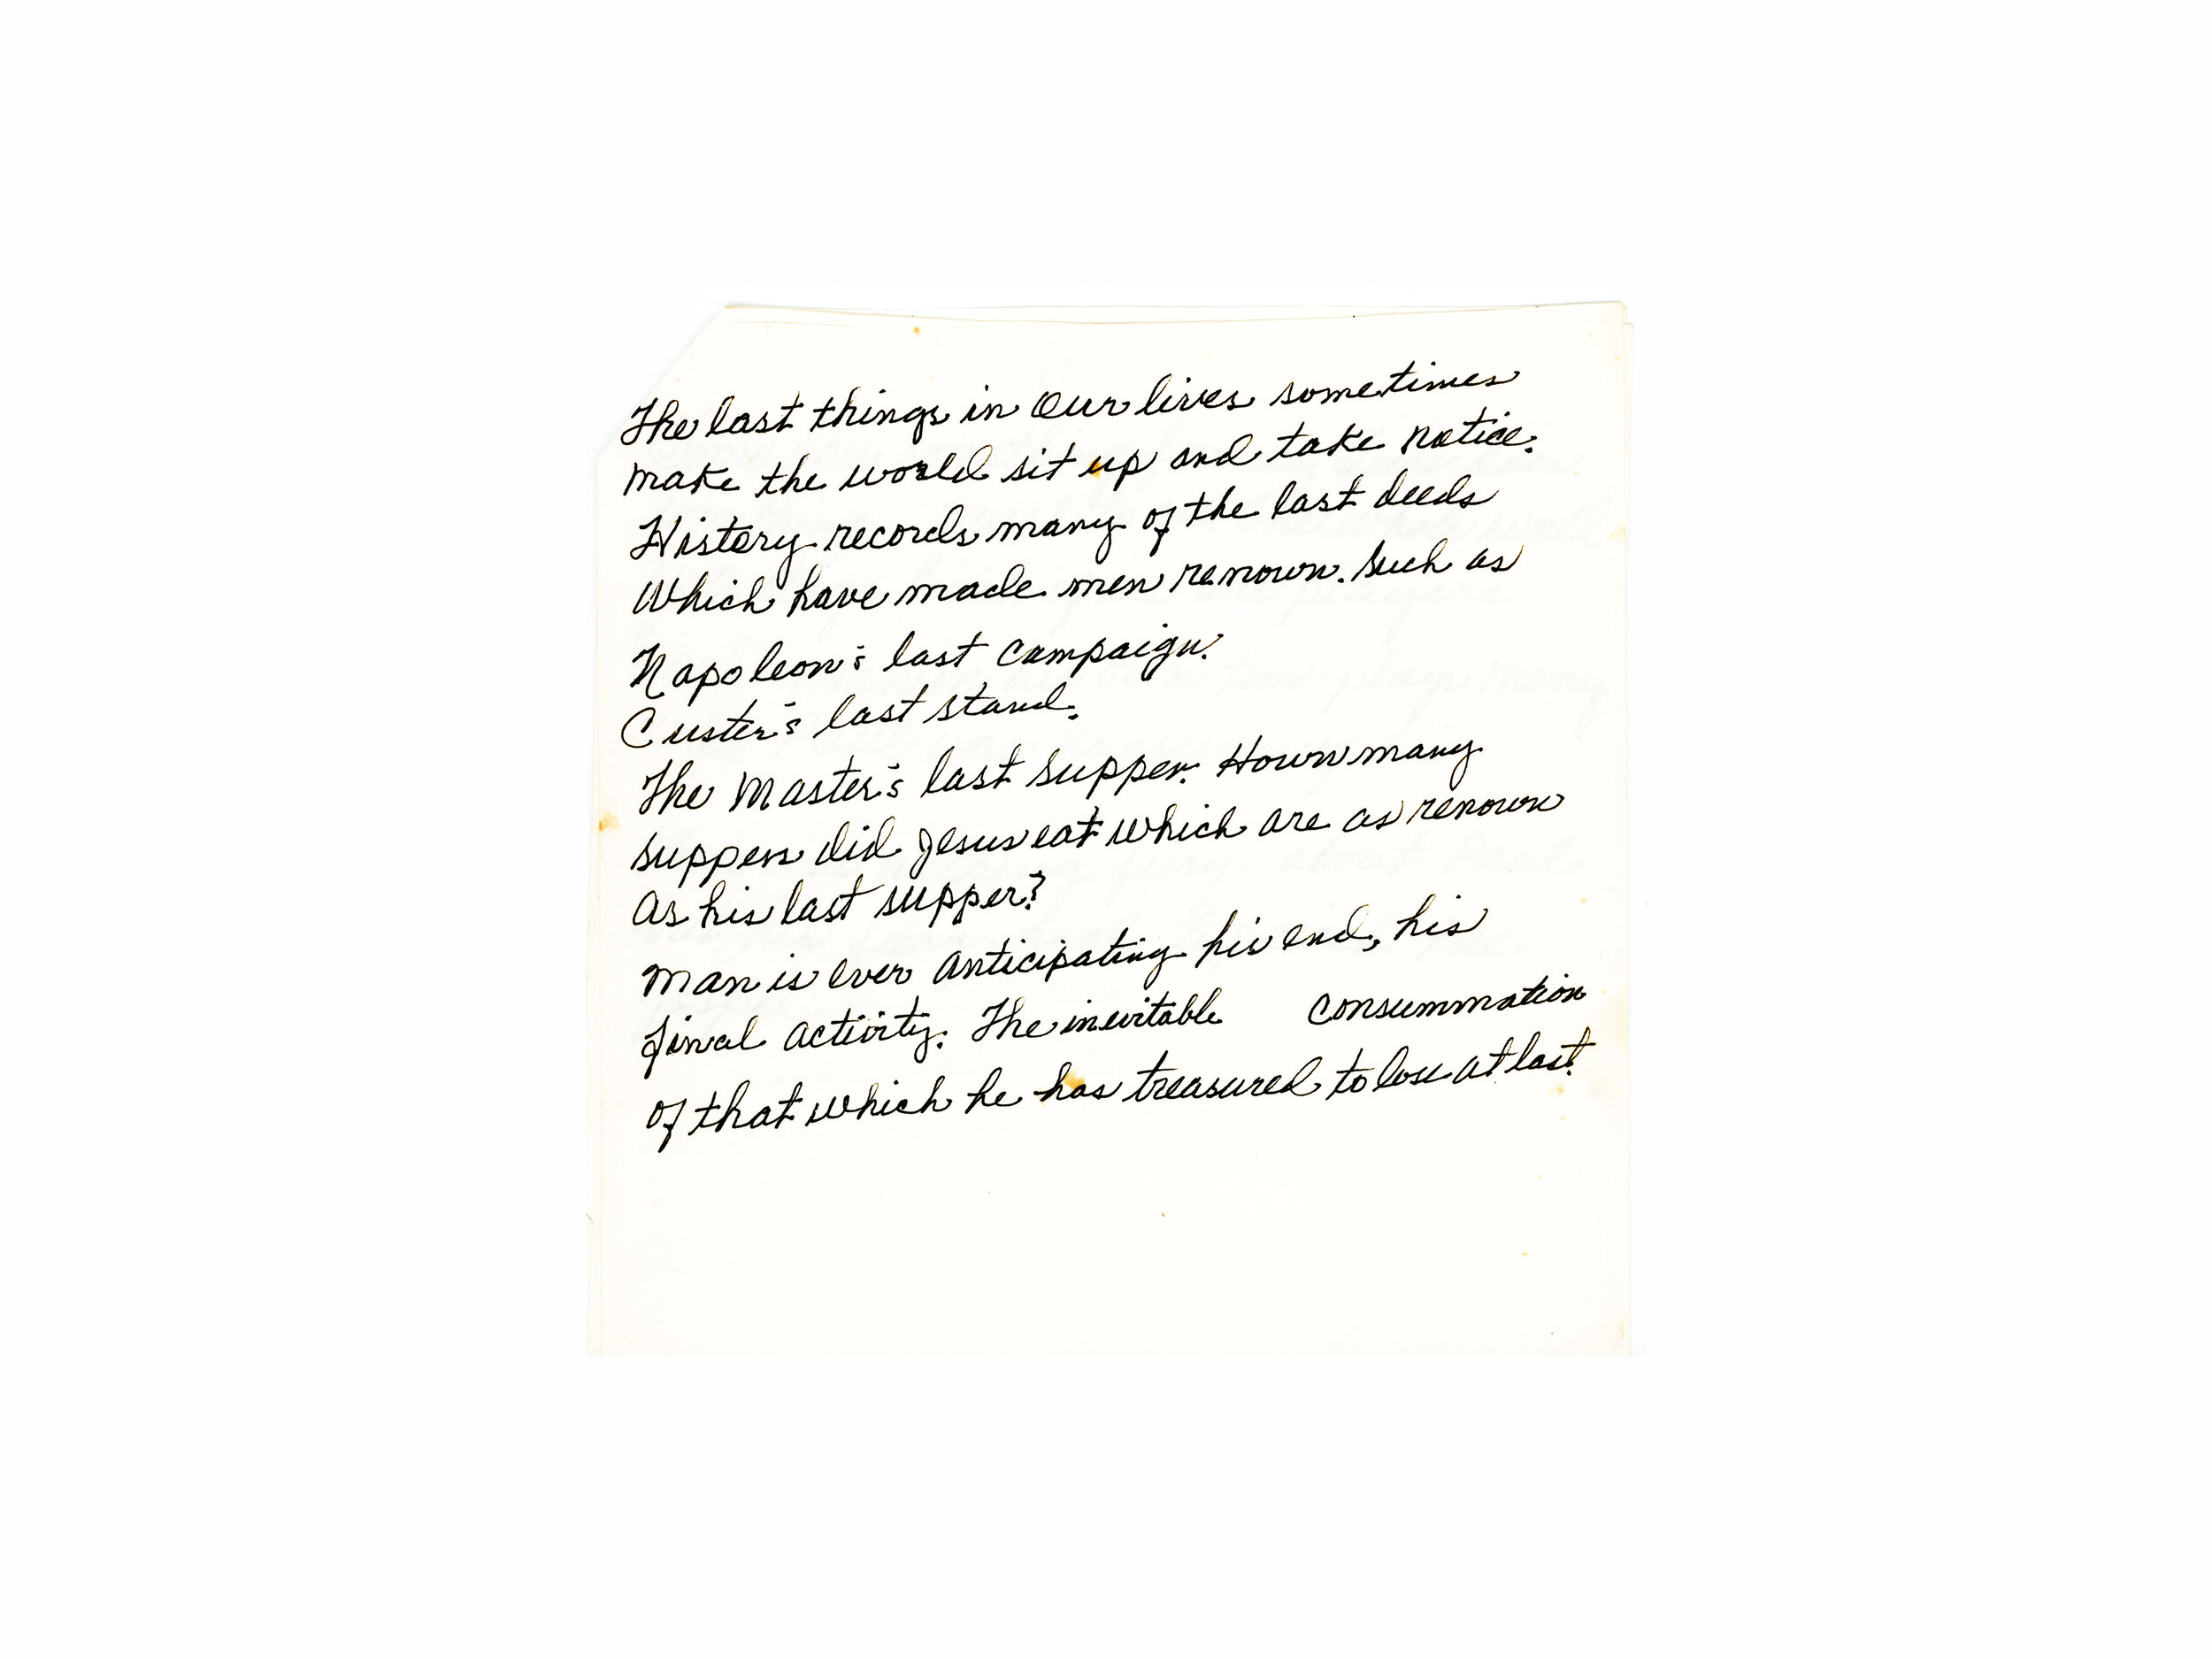 The last things in Our lives sometimes
make the world sit up and take notice.
History records many of the last deeds
Which have made men renown. Such as
Napoleon's last campaign.
Custer's last stand.
The Master's last supper. How many
suppers did Jesus eat which are as renown
As his last supper?
Man is ever Anticipating his end, his
final activity. The inevitable consummation
of that which he has treasured to lose at last.